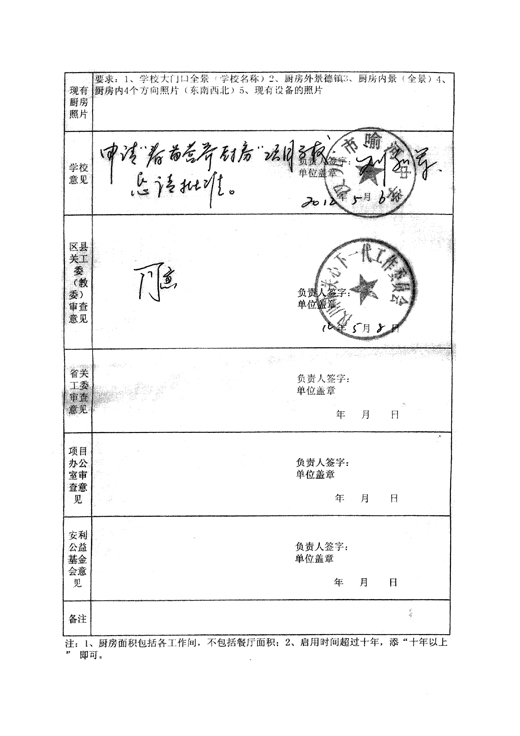 现有
厨房
照片
要求：1、学校大门口全景（学校名称）2、厨房外景德镇3、厨房内景（全景）4、
厨房内4个方向照片（东南西北）5、现有设备的照片
学校
意见
申请“春苗营养厨房”项目学校，
恳请批准。
负责人签字：
单位盖章
2012年5月6日
区县
关工
委
（教
委）
审查
意见
同意
负责人签字：
单位盖章
12年5月8日
关心下一代工作委员会
省关
工委
审查
意见
负责人签字：
单位盖章
年 月 日
项目
办公
室审
查意
见
负责人签字：
单位盖章
年 月 日
安利
公益
基金
会意
见
负责人签字：
单位盖章
年 月 日
备注
注：1、厨房面积包括各工作间，不包括餐厅面积；2、启用时间超过十年，添“十年以上
”即可。